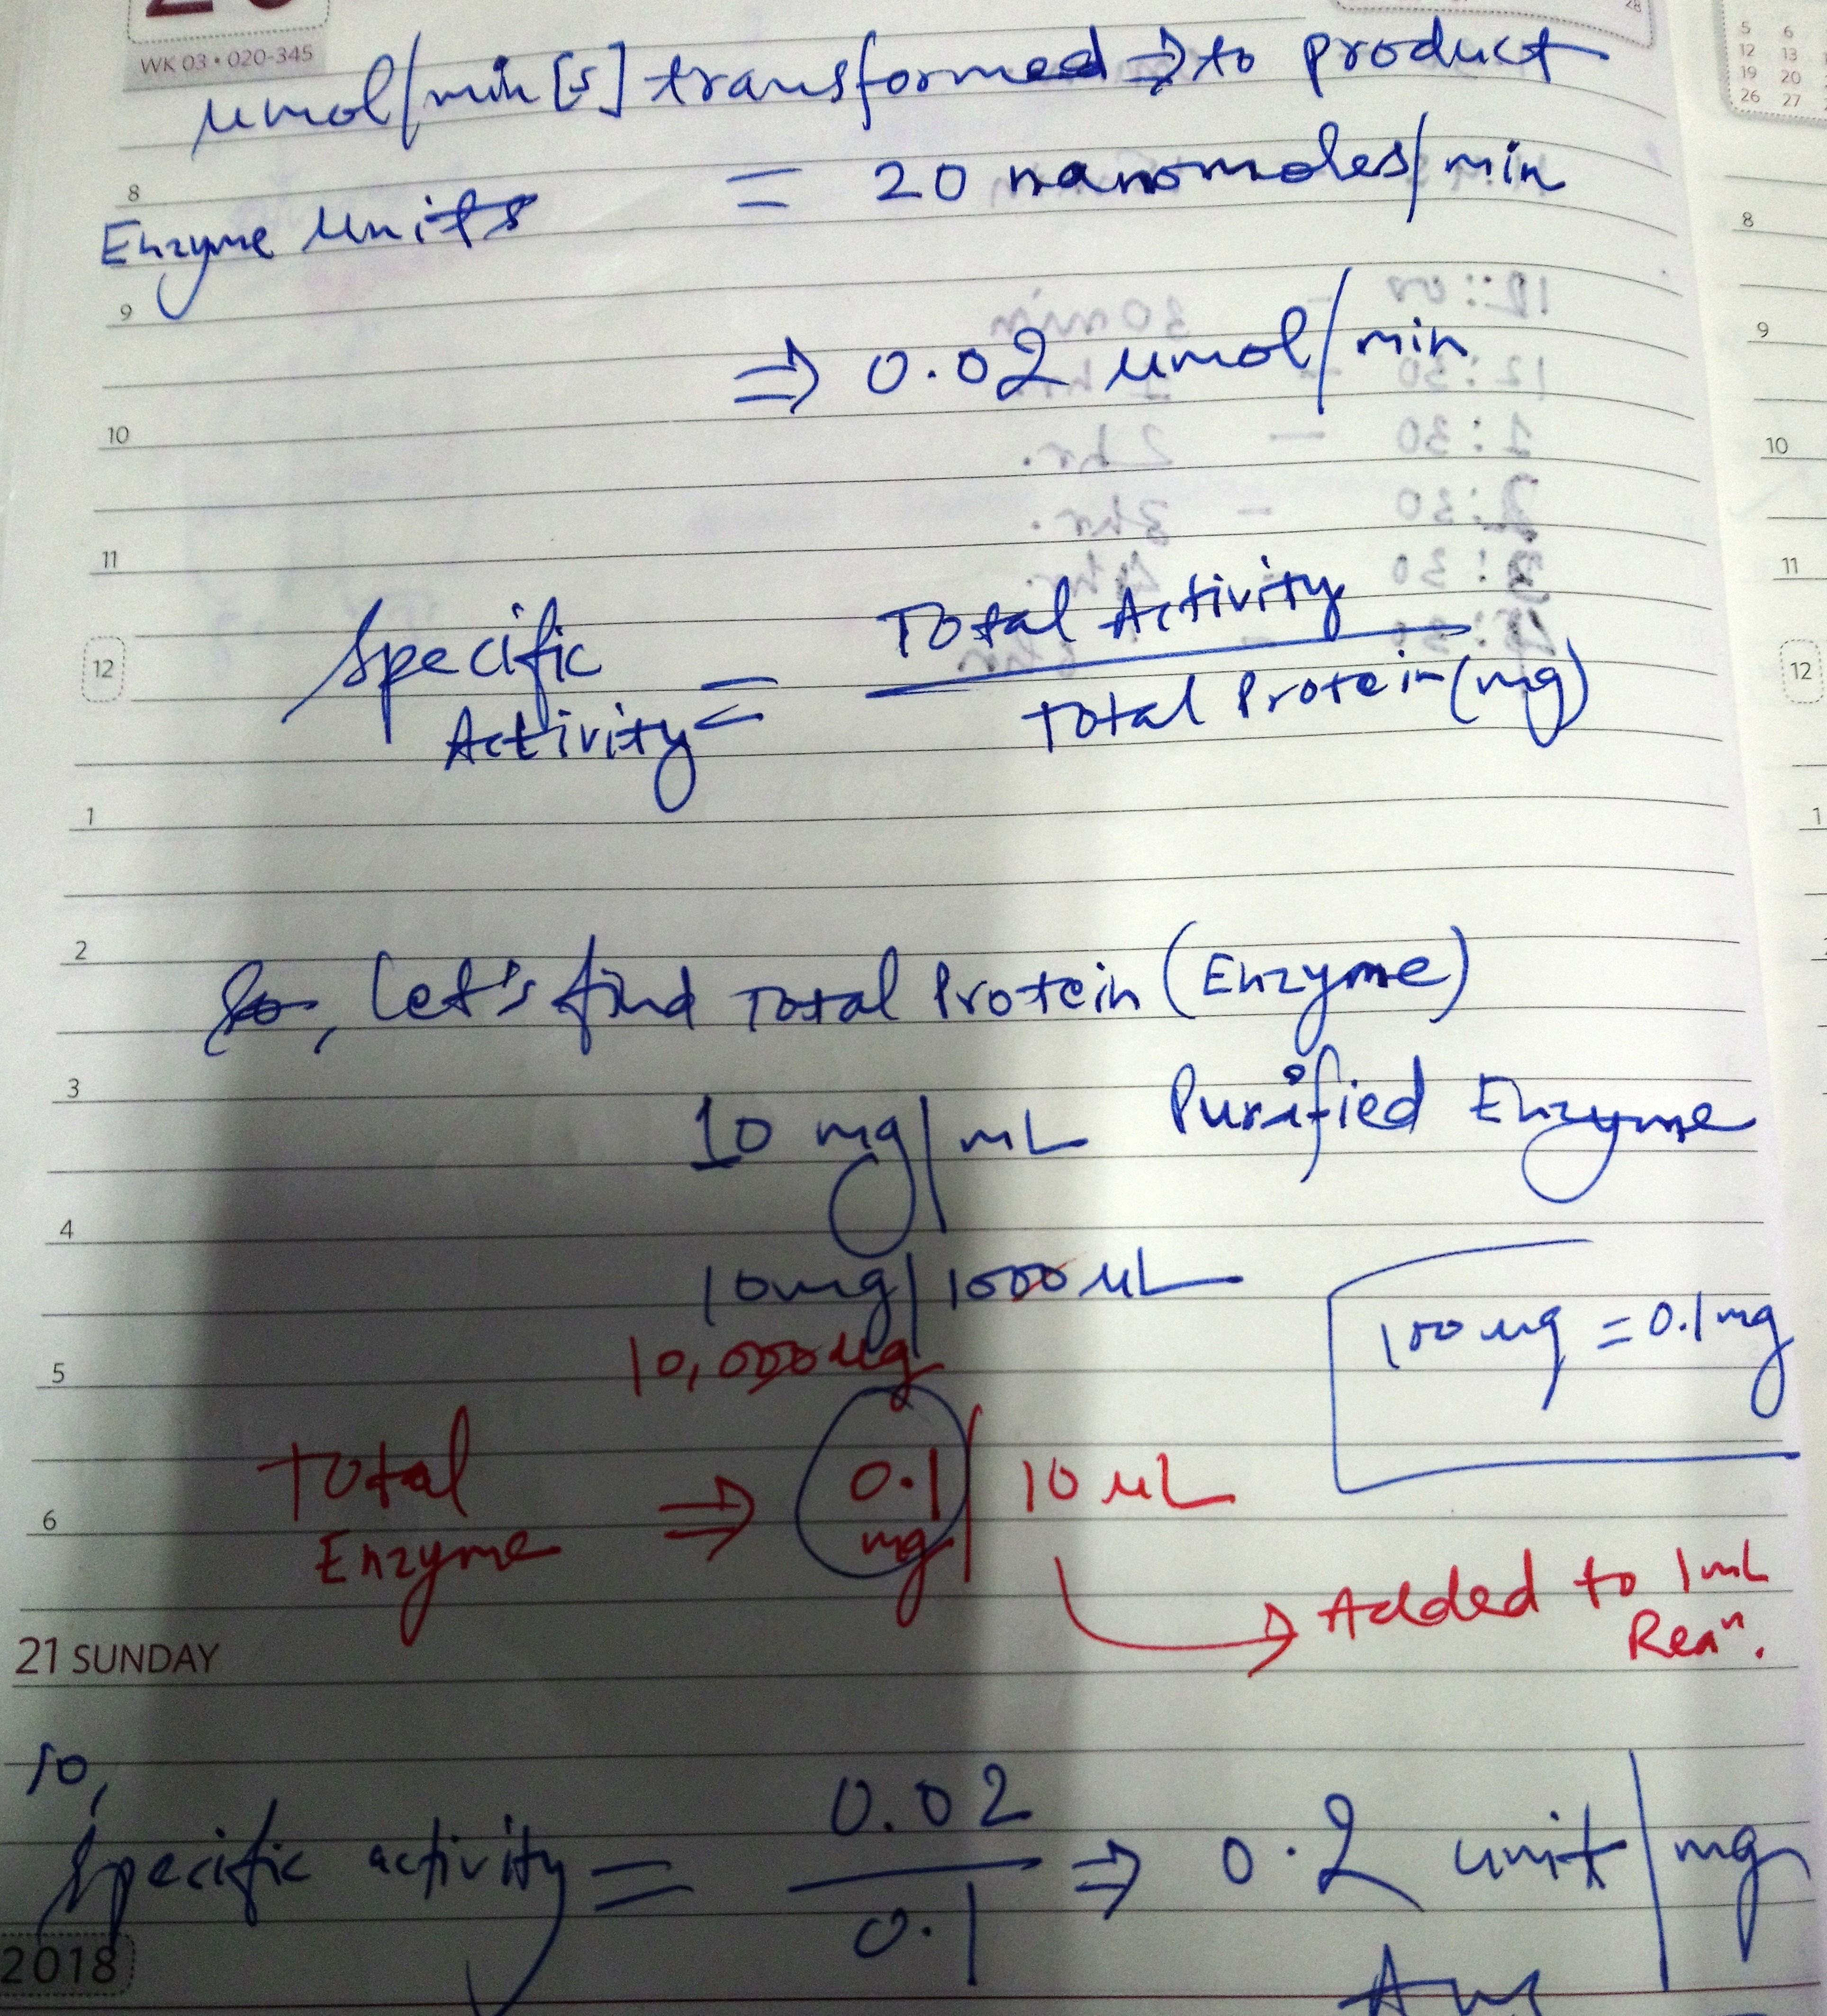 WK 03 • 020-345
28
5 6
12 13
19 20
26 27
µmol/min [s] transformed ⇒ to product
Enzyme Units = 20 nanomoles/min
⇒ 0.02 µmol/min
Specific Activity = Total Activity / Total Protein (mg)
So, Let's find Total Protein (Enzyme)
10 mg/mL Purified Enzyme
10mg/1000 µL
10,000µg
100 µg = 0.1 mg
Total Enzyme ⇒ 0.1 mg / 10 µL
→ Added to 1 mL Reaⁿ.
8
9
10
11
12
1
2
3
4
5
6
8
9
10
11
12
1
21 SUNDAY
so,
Specific activity = 0.02 / 0.1 ⇒ 0.2 unit/mg
Ans
2018